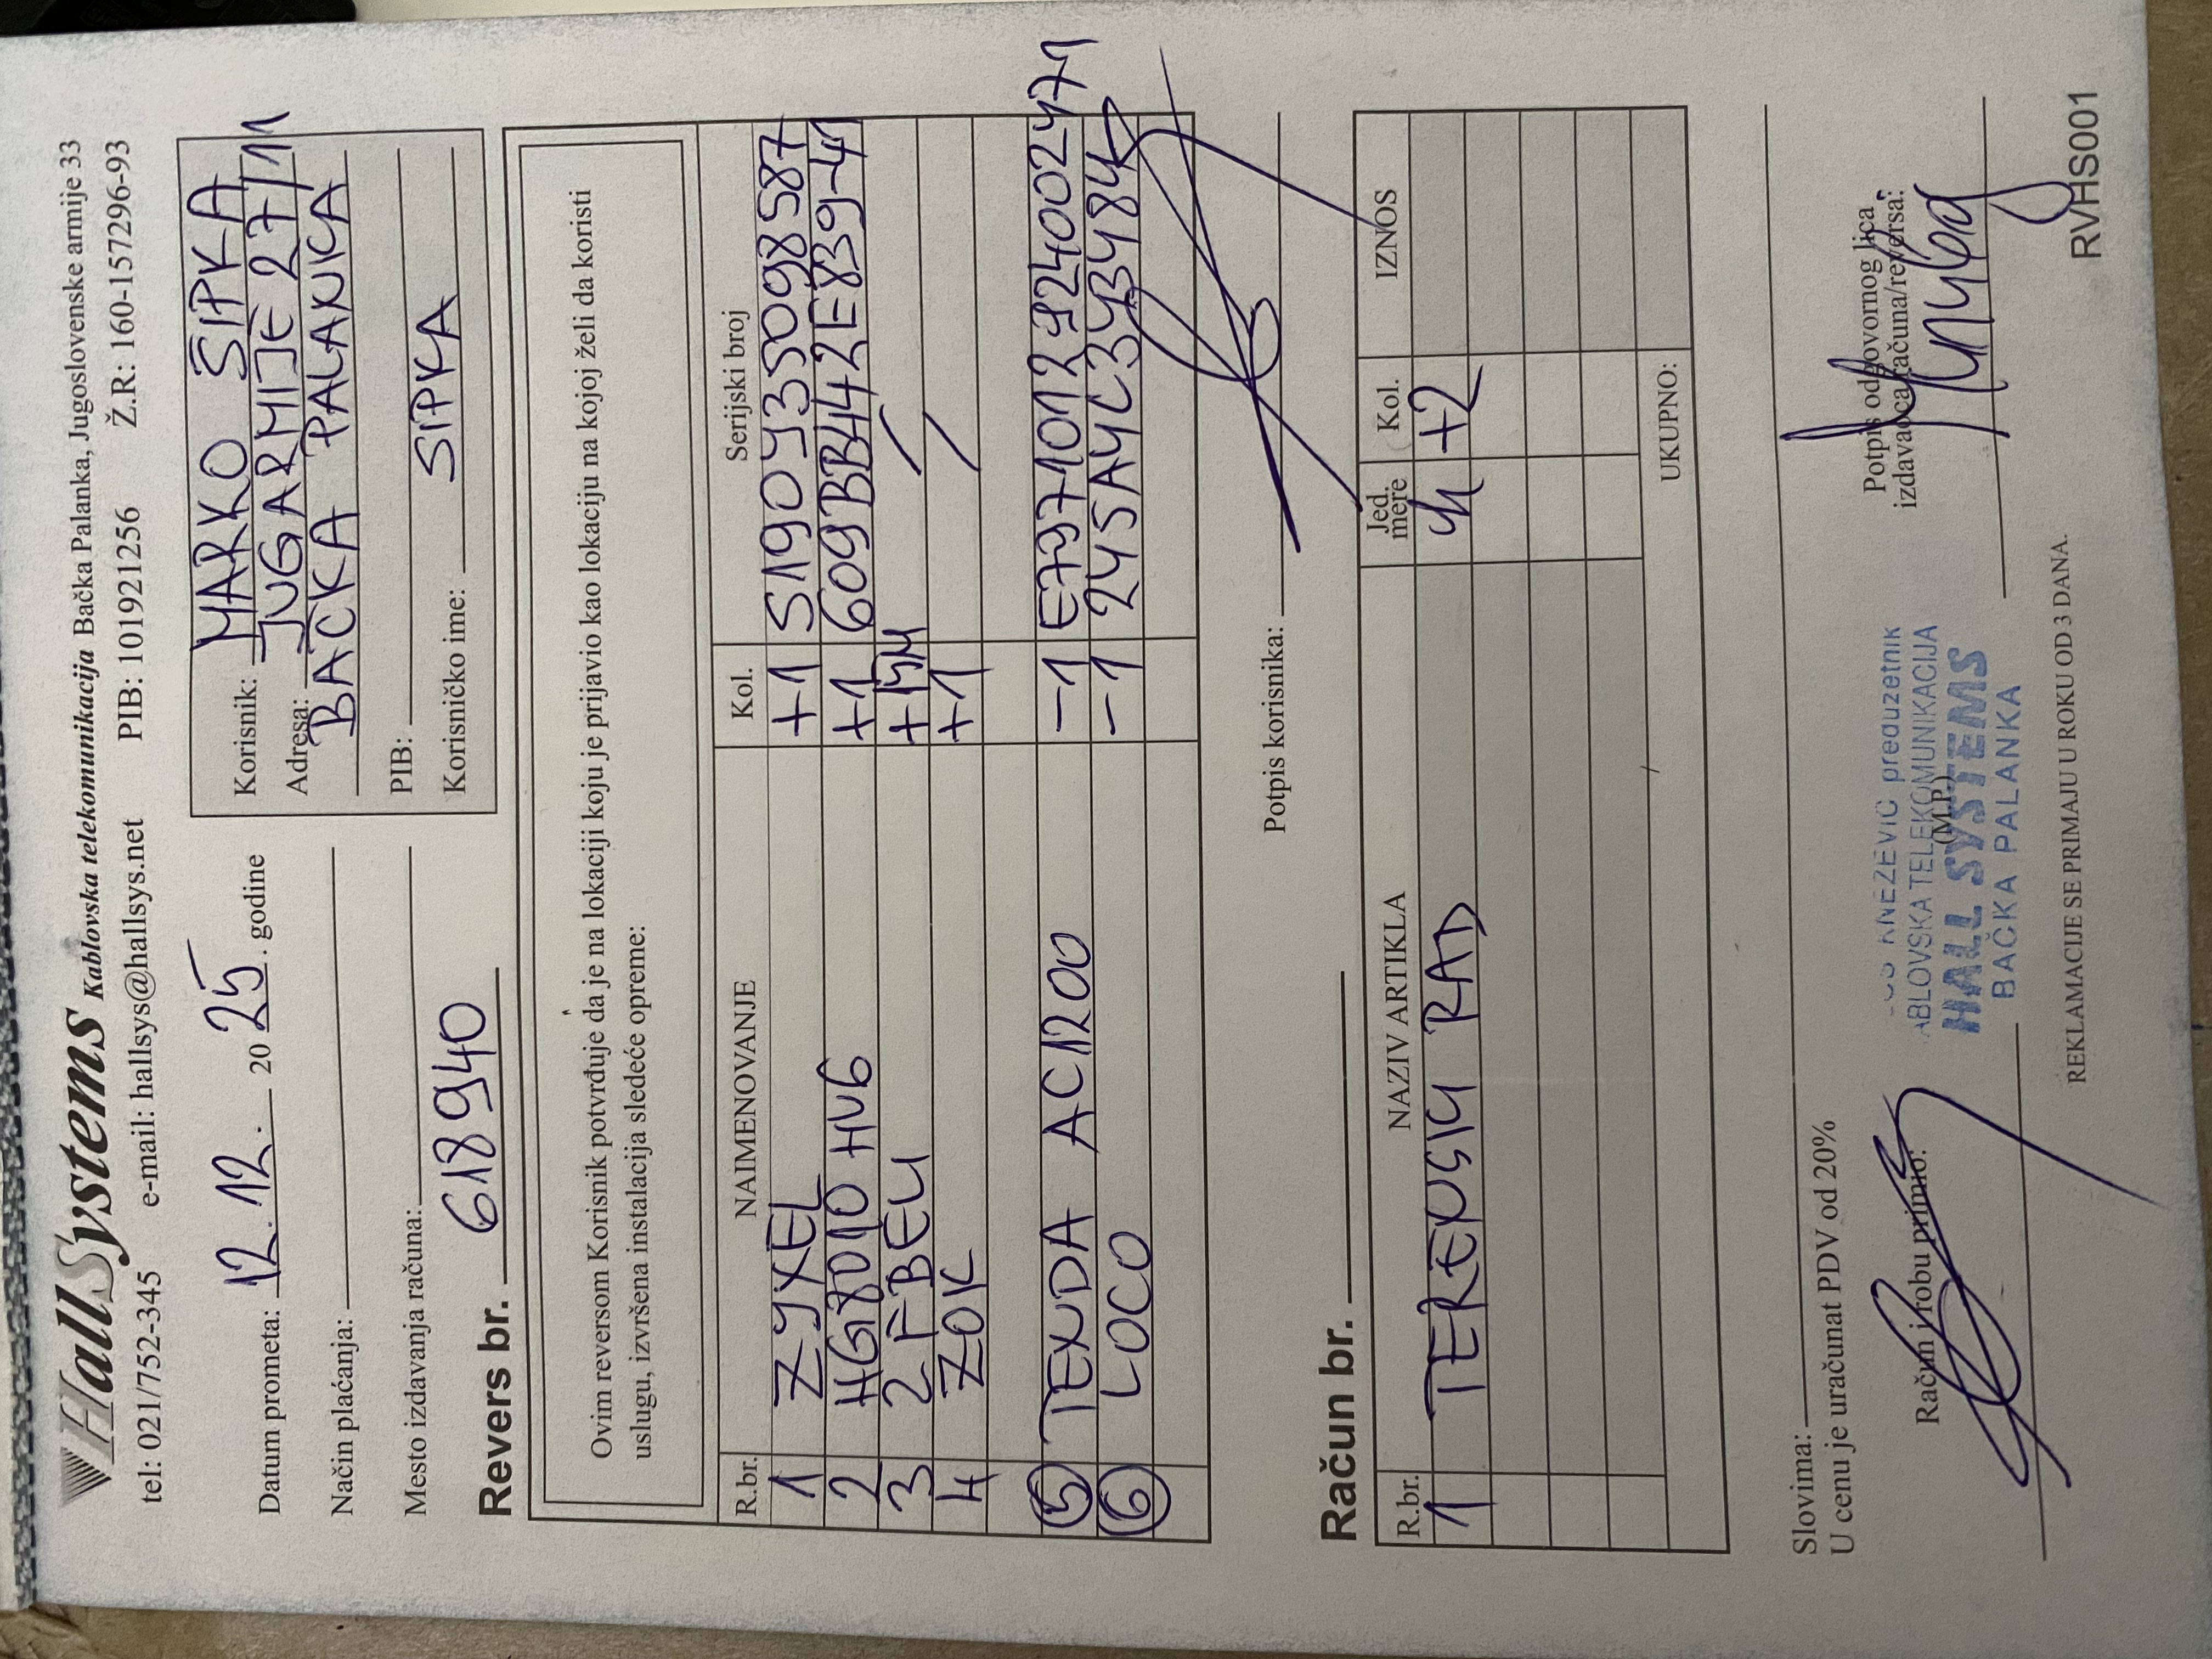 HallSystems Kablovska telekomunikacija Bačka Palanka, Jugoslovenske armije 33
tel: 021/752-345 e-mail: hallsys@hallsys.net PIB: 101921256 Ž.R: 160-157296-93
Datum prometa: 12.12. 20 25. godine
Način plaćanja:
Mesto izdavanja računa:
Korisnik: MARKO SIPKA
Adresa: JUG ARMIJE 27/11
BAČKA PALANKA
PIB:
Korisničko ime: SIPKA
Revers br. 618940
Ovim reversom Korisnik potvrđuje da je na lokaciji koju je prijavio kao lokaciju na kojoj želi da koristi
uslugu, izvršena instalacija sledeće opreme:
R.br. NAIMENOVANJE Kol. Serijski broj
1 ZYXEL +1 S190Y35098587
2 HG8010 HV6 +1 609BB442E839-41
3 2F BELI
4 ZOK +1
5 TENDA AC1200 -1 E7971012924002471
6 LOCO -1 245A4C343484
Potpis korisnika:
Račun br.
R.br. NAZIV ARTIKLA Jed. mere Kol. IZNOS
1 TERENSKI RAD h +2
UKUPNO:
Slovima:
U cenu je uračunat PDV od 20%
Račun i robu primio:
KNEŽEVIĆ preduzetnik
ABLOVSKA TELEKOMUNIKACIJA
HALL SYSTEMS
(M.P.)
BAČKA PALANKA
Potpis odgovornog lica
izdavaoca računa/reversa:
REKLAMACIJE SE PRIMAJU U ROKU OD 3 DANA.
RVHS001